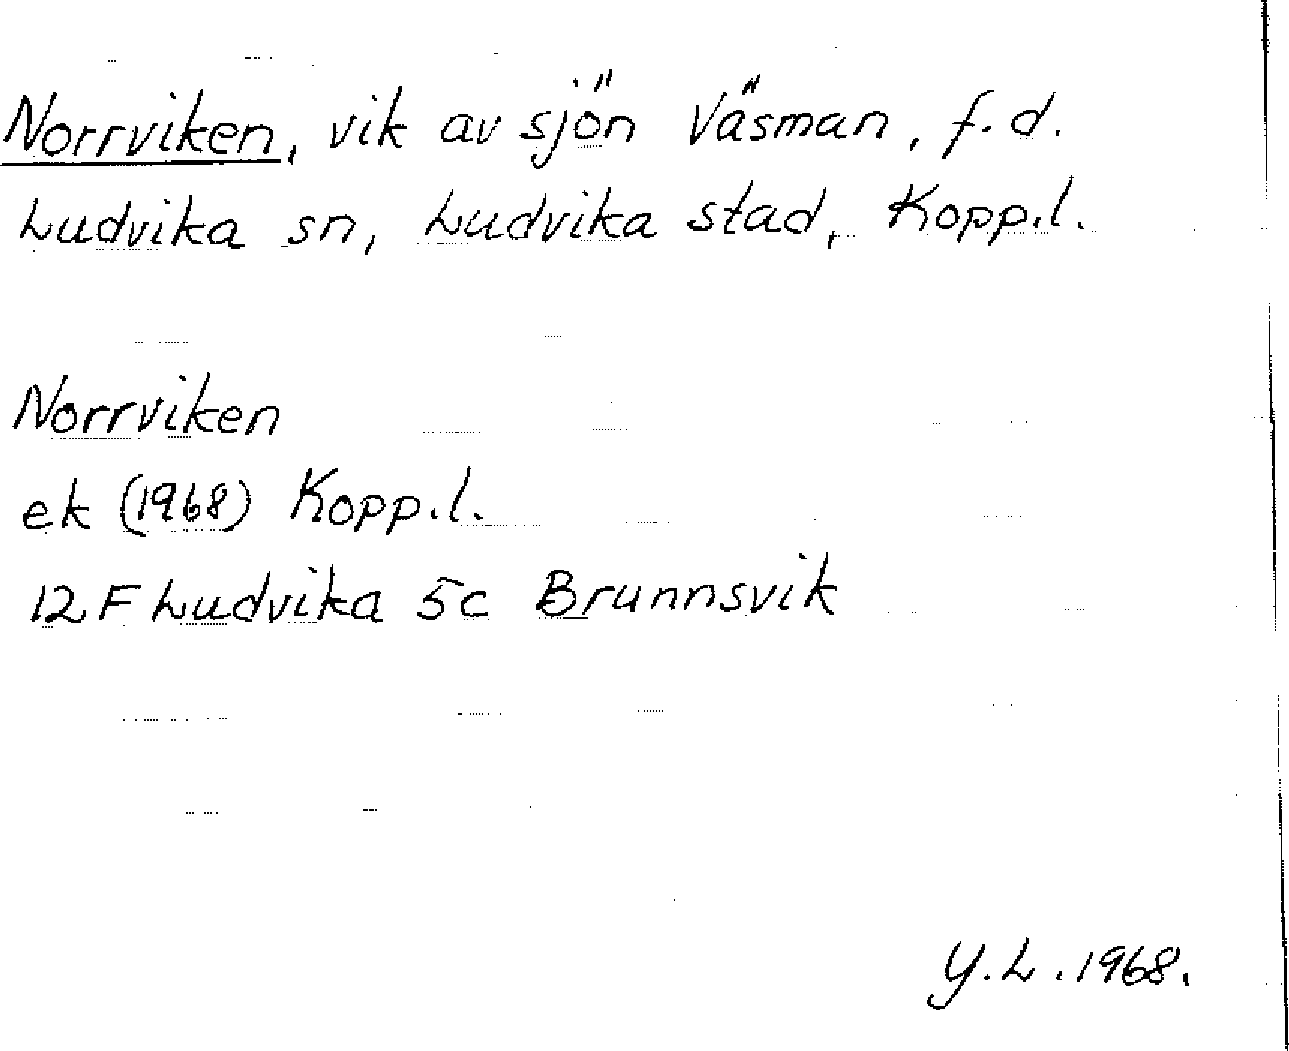 Norrviken, vik av sjön Väsman, f.d.
Ludvika sn, Ludvika stad, Kopp.l.
Norrviken
ek (1968) Kopp.l.
12F Ludvika 5c Brunnsvik
Y.L. 1968.